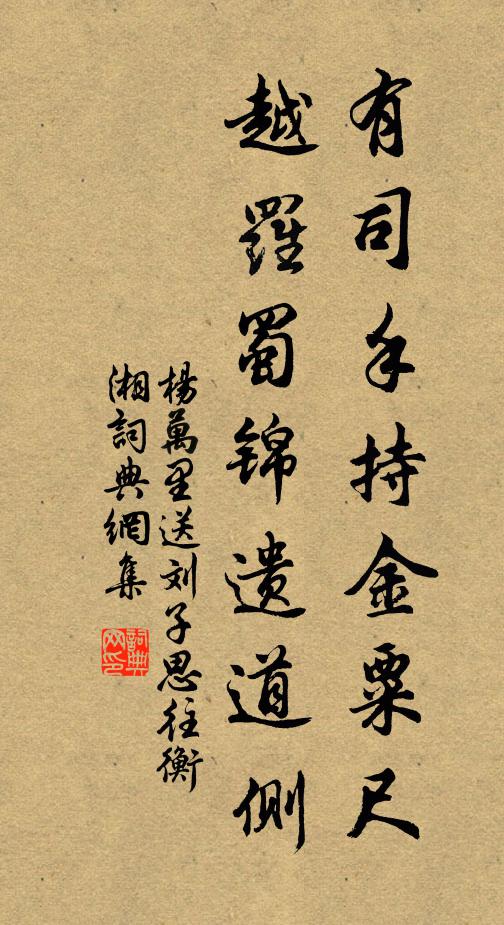 有司手持金粟尺
越羅蜀锦遗道側
楊萬里送刘子思往衡
湘詞典網集
詞典网印